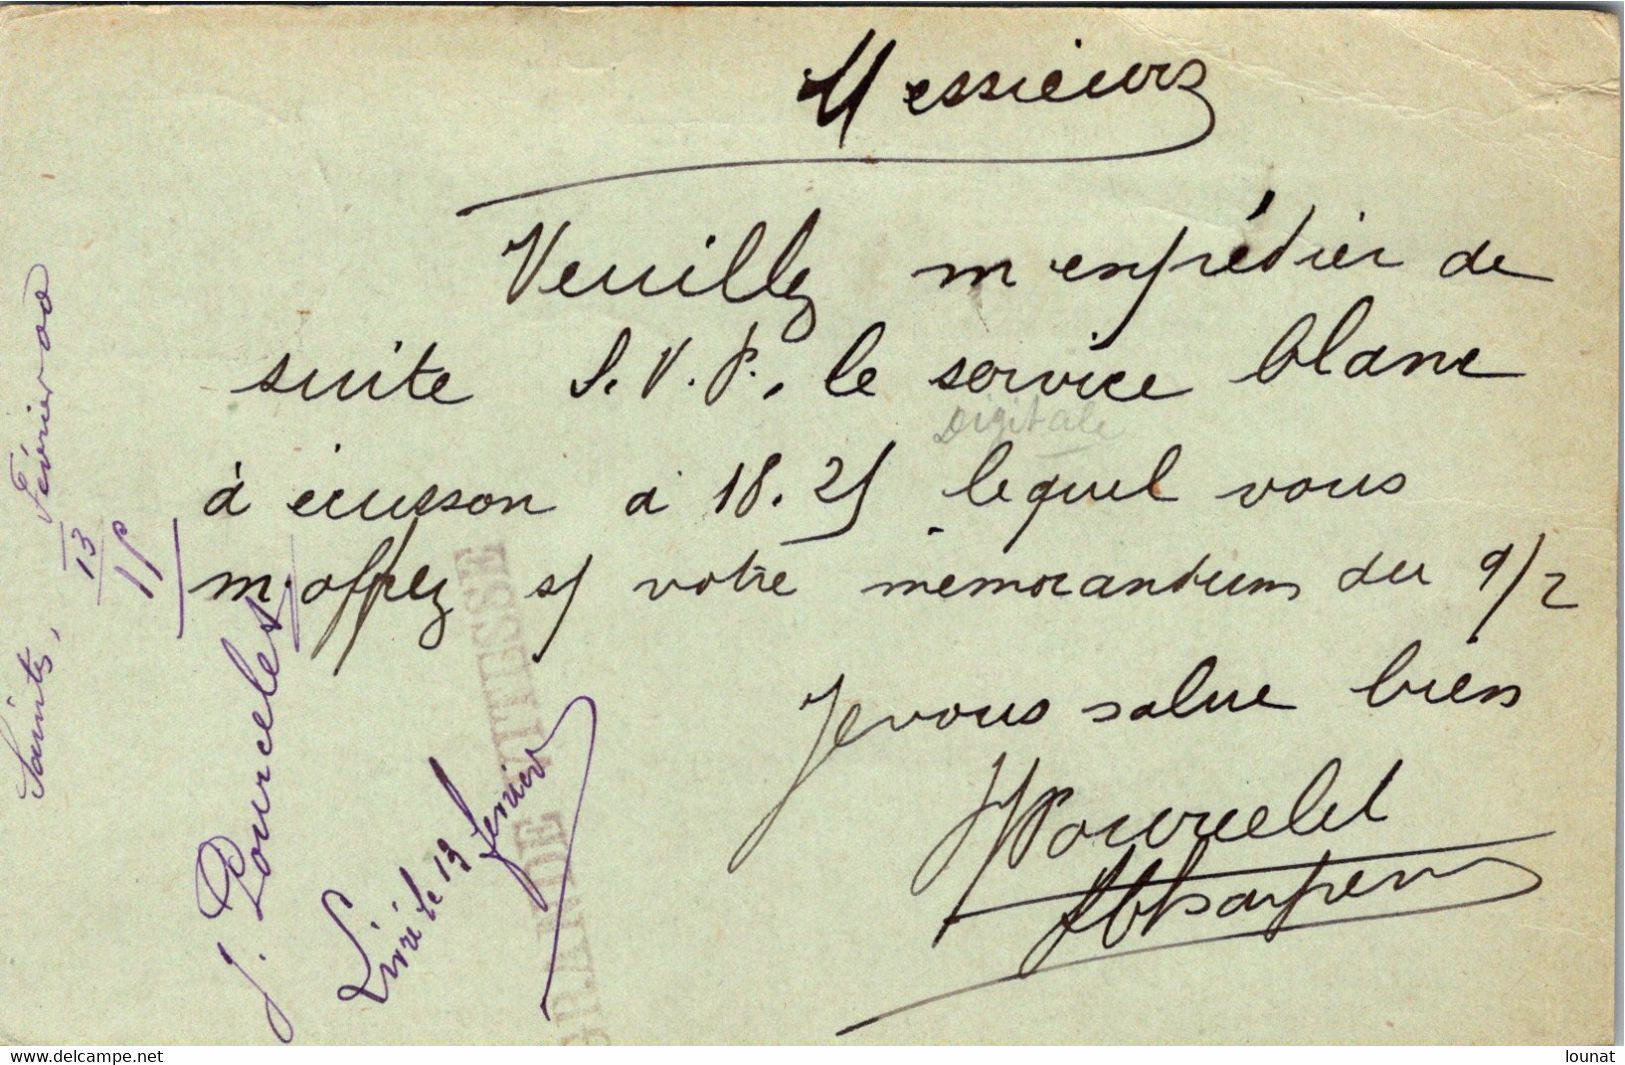 Messieurs
Veuillez m'expédier de
suite S.V.P., le service blanc
Digitale
à écusson à 18.25 lequel vous
m'offrez s/ votre memorandum du 9/2
Je vous salue bien
J Pourcelet
Saints, Février
13
15
J. Pourcelet
Livré le 13 fevrier
www.delcampe.net
lounat